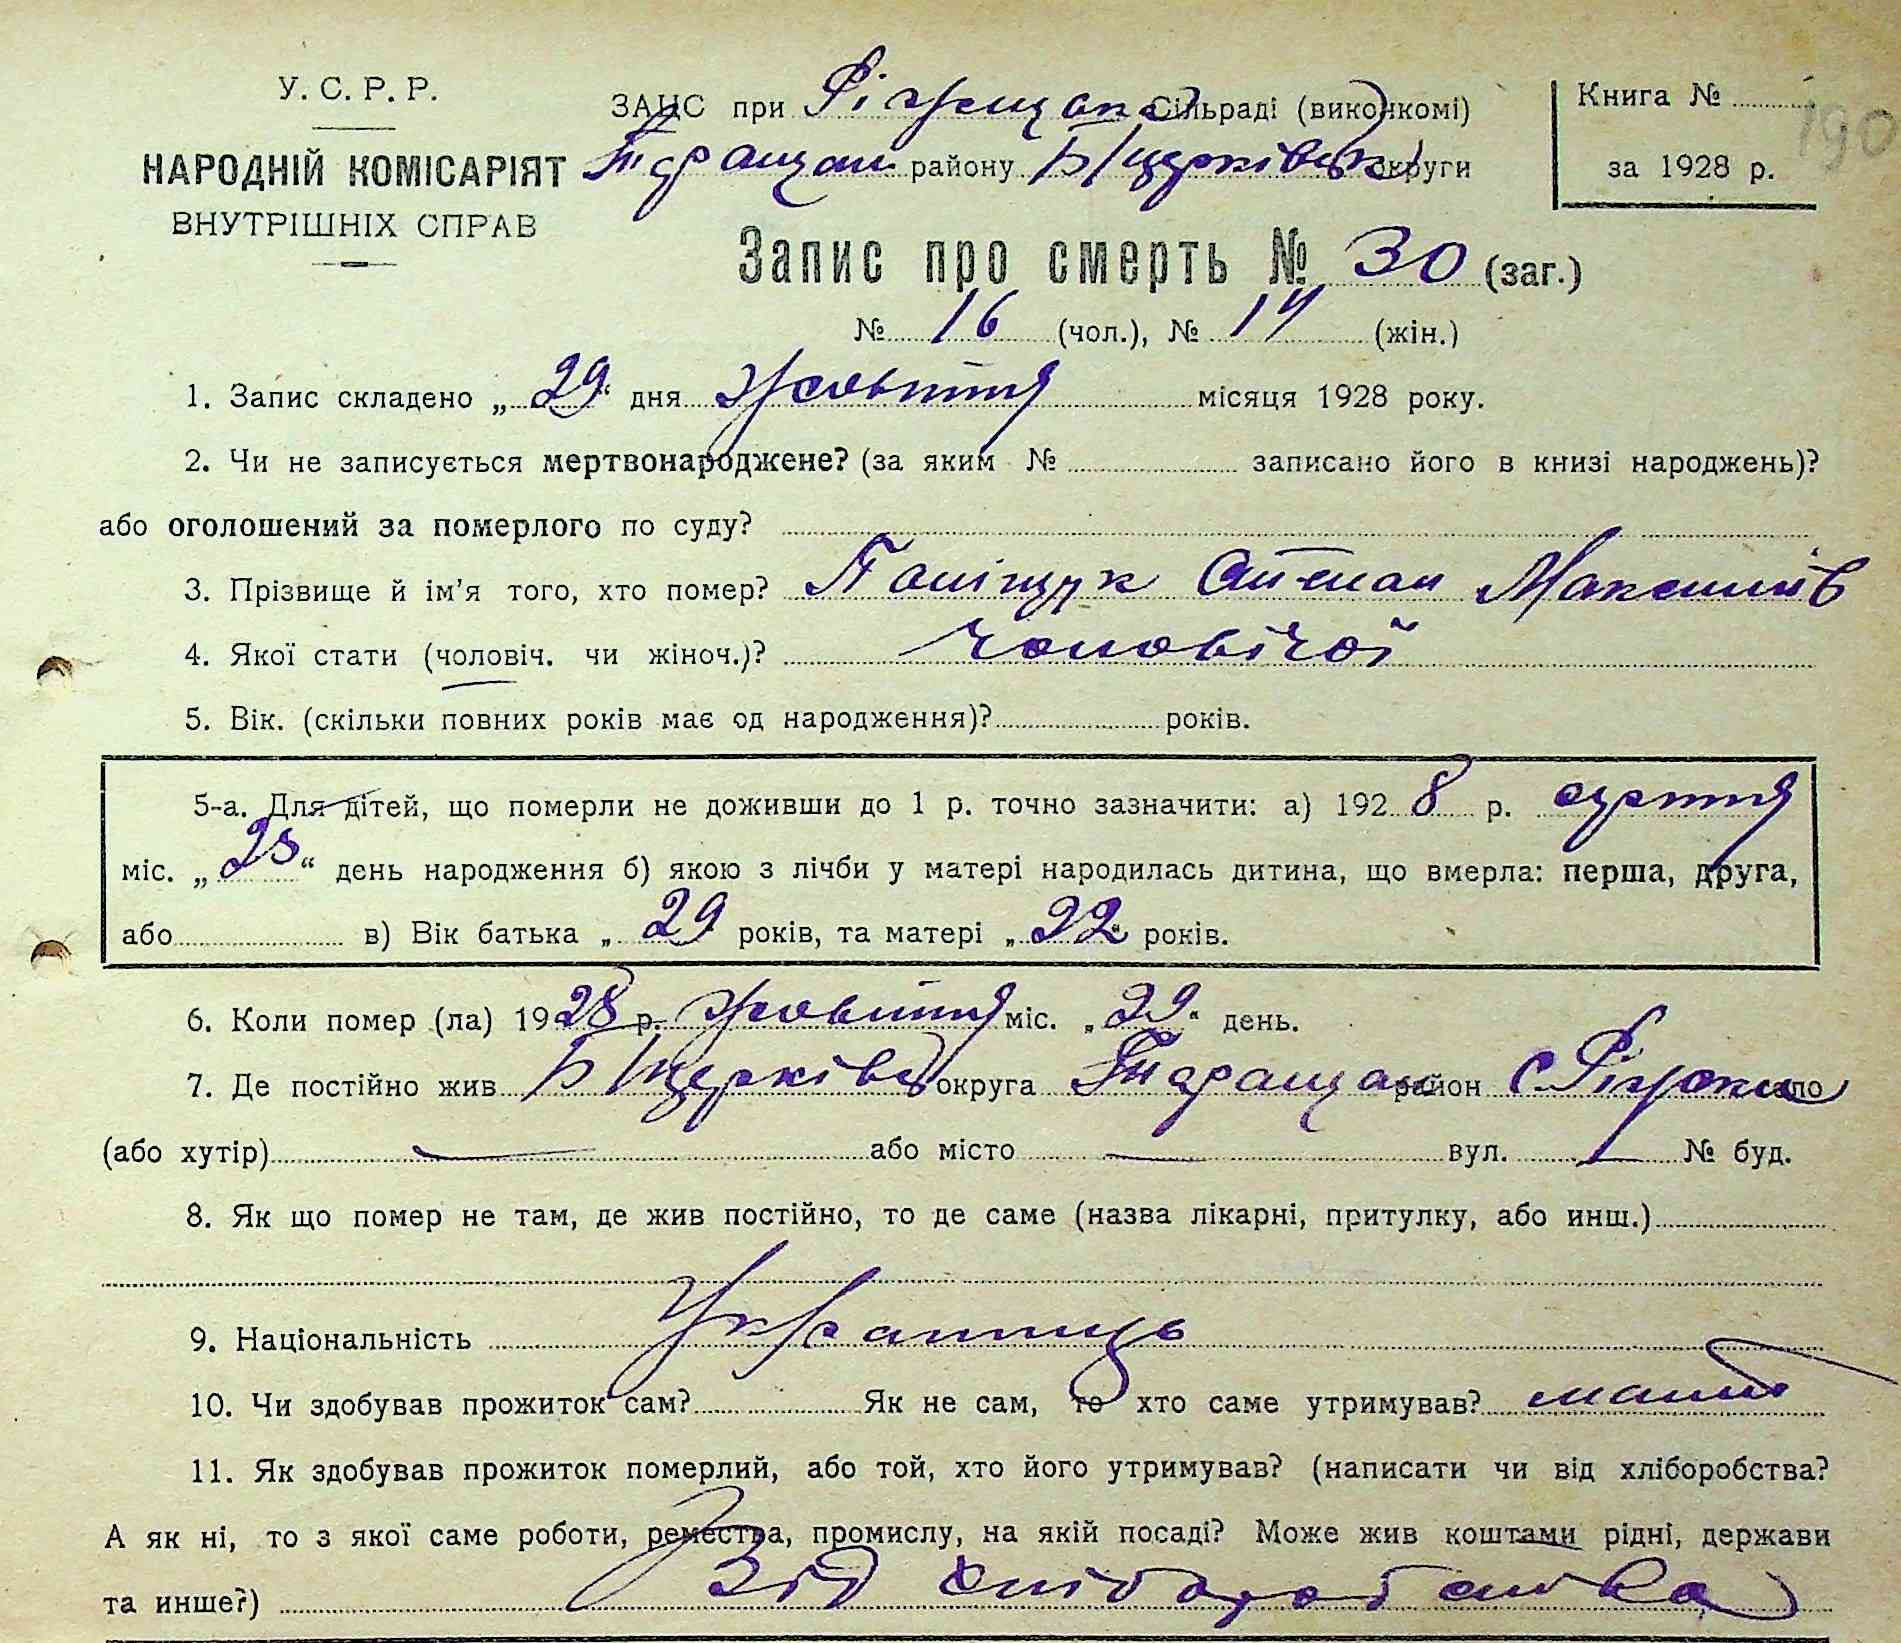 У. С. Р. Р.
НАРОДНІЙ КОМІСАРІЯТ
ВНУТРІШНІХ СПРАВ
ЗАЦС при Сільраді (виконкомі)
Таращан району Б/церківськ округи
Книга №
190
за 1928 р.
Запис про смерть № 30 (заг.)
№ 16 (чол.), № 14 (жін.)
1. Запис складено „ 29 “ дня жовтня місяця 1928 року.
2. Чи не записується мертвонароджене? (за яким № записано його в книзі народжень)?
або оголошений за померлого по суду?
3. Прізвище й ім'я того, хто помер? Поліщук Степан Максимів
4. Якої стати (чоловіч. чи жіноч.)? Чоловічої
5. Вік. (скільки повних років має од народження)? років.
5-а. Для дітей, що померли не доживши до 1 р. точно зазначити: а) 192 8 р. серпня
міс. „ “ день народження б) якою з лічби у матері народилась дитина, що вмерла: перша, друга,
або в) Вік батька „ 29 “ років, та матері „ 22 “ років.
6. Коли помер (ла) 19 28 р. жовтня міс. „ 29 “ день.
7. Де постійно жив Б/церківськ округа Таращан район с. село
(або хутір) — або місто — вул. — № буд.
8. Як що помер не там, де жив постійно, то де саме (назва лікарні, притулку, або инш.)
9. Національність Українець
10. Чи здобував прожиток сам? Як не сам, то хто саме утримував?
11. Як здобував прожиток померлий, або той, хто його утримував? (написати чи від хліборобства?
А як ні, то з якої саме роботи, ремества, промислу, на якій посаді? Може жив коштами рідні, держави
та инше?) Від хліборобства